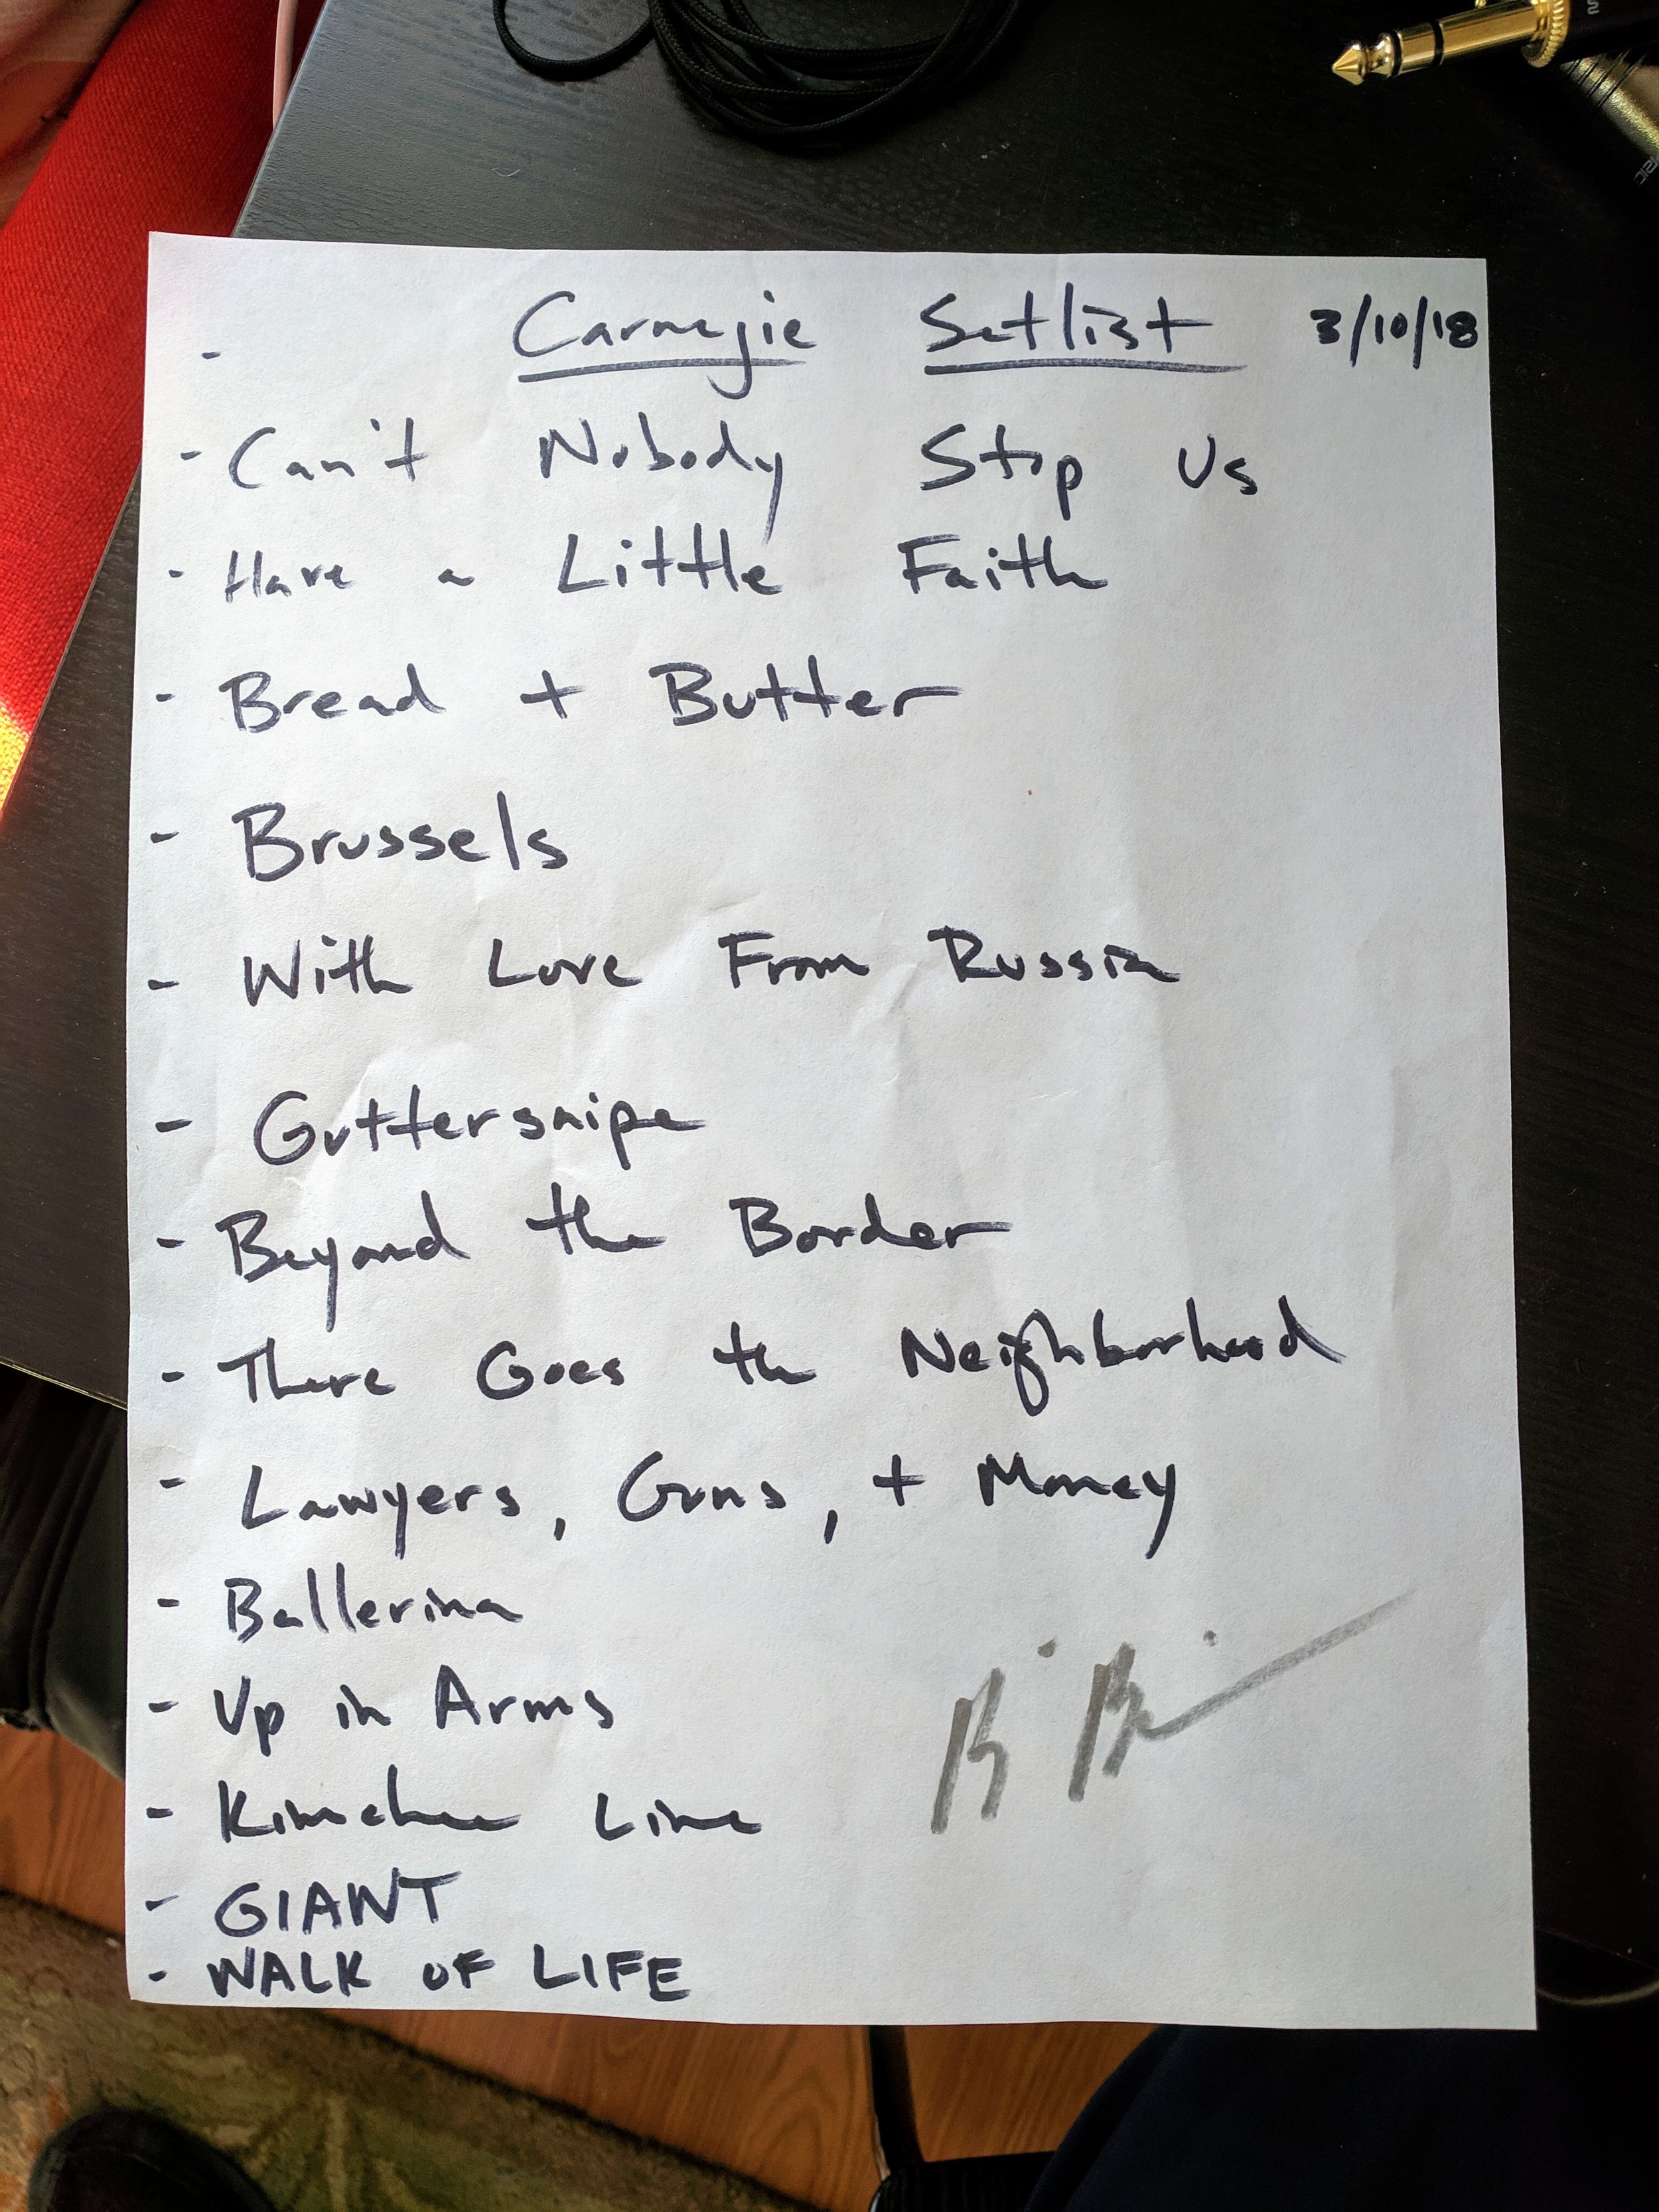 - Carnegie Setlist 3/10/18
- Can't Nobody Stop Us
- Have a Little Faith
- Bread + Butter
- Brussels
- With Love From Russia
- Guttersnipe
- Beyond the Border
- There Goes the Neighborhood
- Lawyers, Guns, + Money
- Ballerina
- Up in Arms
- Kimchee Line
- GIANT
- WALK OF LIFE